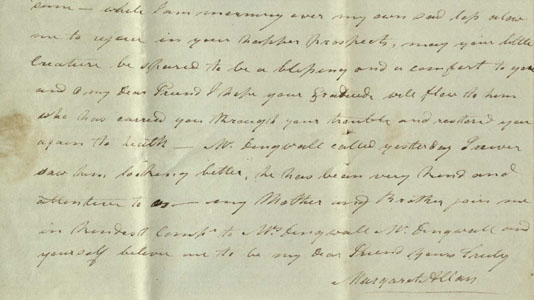 sum — while I am mourning over my own sad loss allow
me to rejoice in your happier prospects, may your little
Creature be spared to be a blessing and a comfort to you
and O my dear Friend I hope your gratitude will flow to him
who has carried you through your trouble and restored you
again to health — Mr. Dingwall called yesterday I never
saw him looking better, he has been very kind and
attentive to us — my Mother and Brother join me
in kindest Comps. to Mrs Dingwall Mr. Dingwall and
yourself believe me to be my dear Friend yours truly
Margaret Allan